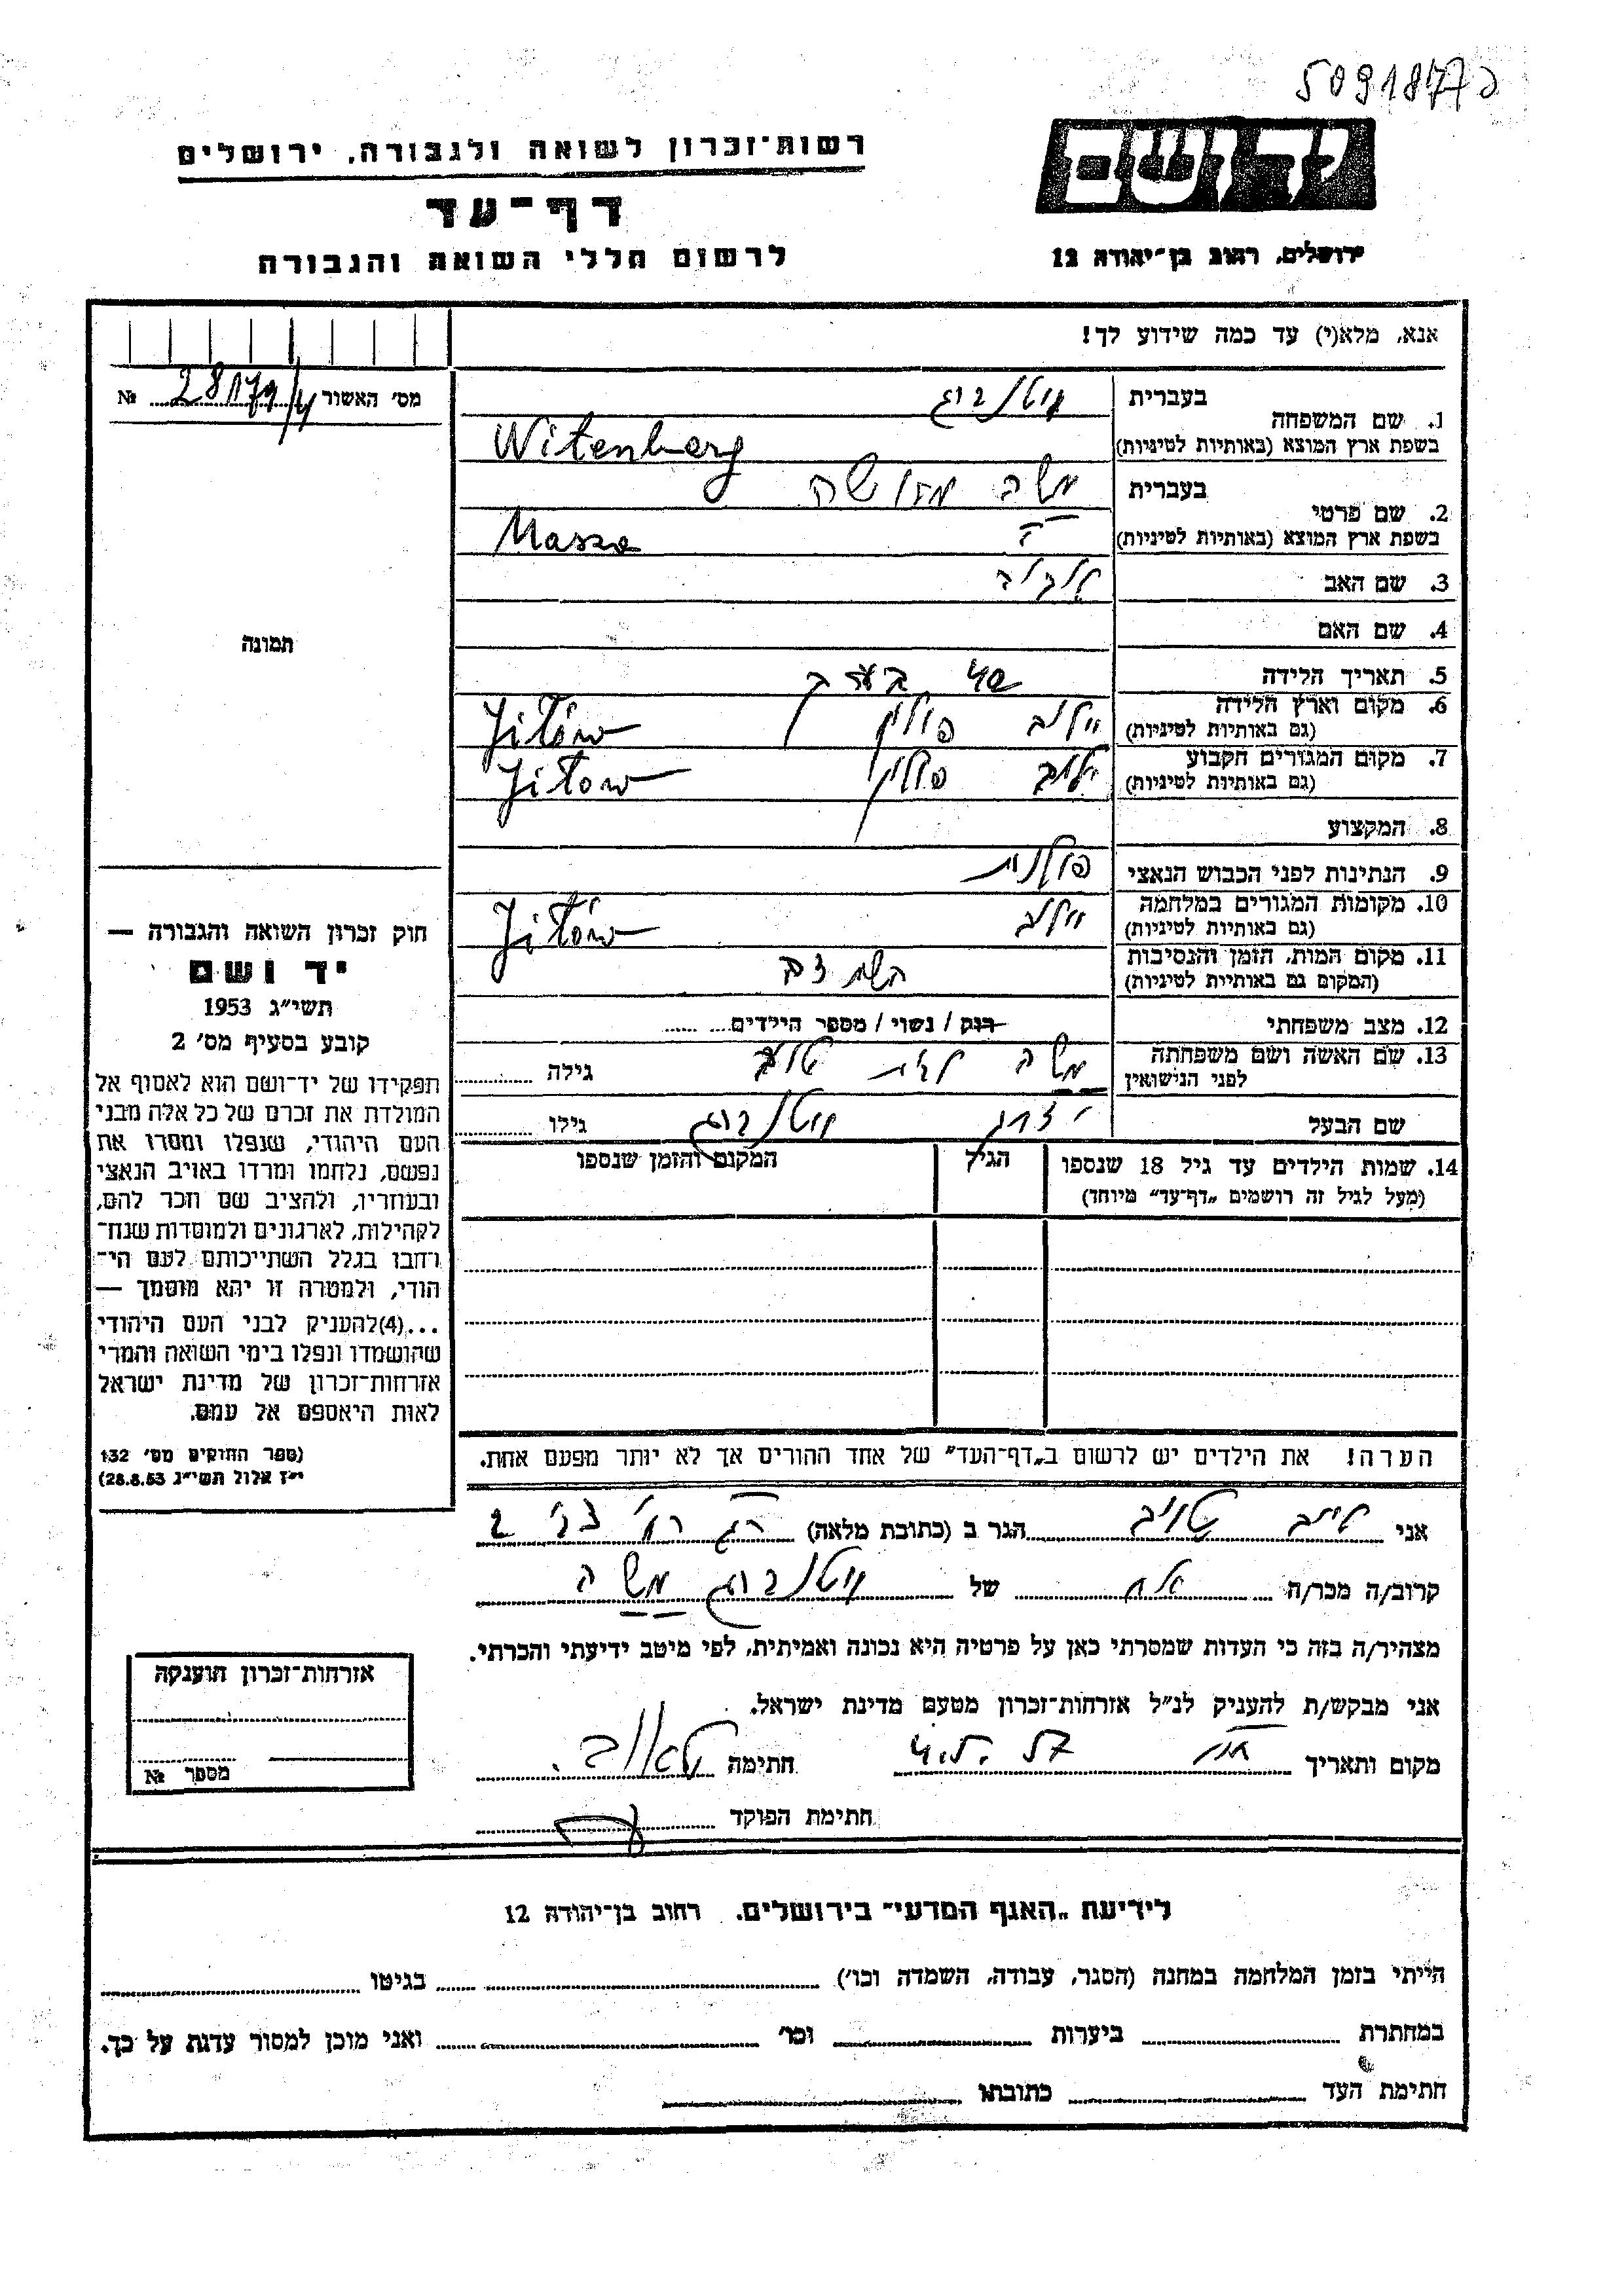 5091877
רשות־זכרון לשואה ולגבורה, ירושלים
יד ושם
דף־עד
לרשום חללי השואה והגבורה
ירושלים, רחוב בן־יהודה 12
אנא, מלא(י) עד כמה שידוע לך!
מס׳ האשור № 28179/4
1. שם המשפחה
בעברית ויטנברג
בשפת ארץ המוצא (באותיות לטיניות) Witenberg
2. שם פרטי
בעברית משה
בשפת ארץ המוצא (באותיות לטיניות) Masza
3. שם האב
4. שם האם
5. תאריך הלידה
6. מקום וארץ הלידה
(גם באותיות לטיניות) פולין Jitów
7. מקום המגורים הקבוע
(גם באותיות לטיניות) פולין Jitow
8. המקצוע
9. הנתינות לפני הכבוש הנאצי פולנית
10. מקומות המגורים במלחמה
(גם באותיות לטיניות) Jitów
11. מקום המות, הזמן והנסיבות
(המקום גם באותיות לטיניות)
12. מצב משפחתי רוק / נשוי / מספר הילדים
13. שם האשה ושם משפחתה
לפני הנישואין משה לבית טויב גילה
שם הבעל ויטנברג גילו
14. שמות הילדים עד גיל 18 שנספו
(מעל לגיל זה רושמים „דף־עד״ מיוחד)
הגיל
המקום והזמן שנספו
הערה! את הילדים יש לרשום ב„דף־העד״ של אחד ההורים אך לא יותר מפעם אחת.
תמונה
חוק זכרון השואה והגבורה —
יד ושם
תשי״ג 1953
קובע בסעיף מס׳ 2
תפקידו של יד־ושם הוא לאסוף אל
המולדת את זכרם של כל אלה מבני
העם היהודי, שנפלו ומסרו את
נפשם, נלחמו ומרדו באויב הנאצי
ובעוזריו, ולהציב שם וזכר להם,
לקהילות, לארגונים ולמוסדות שנח־
רחבו בגלל השתייכותם לעם הי־
הודי, ולמטרה זו יהא מוסמך —
...(4)להעניק לבני העם היהודי
שהושמדו ונפלו בימי השואה והמרי
אזרחות־זכרון של מדינת ישראל
לאות היאספם אל עמם.
(ספר החוקים מס׳ 132
י״ז אלול תשי״ג 28.8.53)
אני טויב הגר ב (כתובת מלאה)
קרוב/ה מכר/ה של ויטנברג משה
מצהיר/ה בזה כי העדות שמסרתי כאן על פרטיה היא נכונה ואמיתית, לפי מיטב ידיעתי והכרתי.
אני מבקש/ת להעניק לנ״ל אזרחות־זכרון מטעם מדינת ישראל.
מקום ותאריך חתימה
חתימת הפוקד
אזרחות־זכרון הוענקה
מספר №
לידיעת „האגף המדעי״ בירושלים. רחוב בן־יהודה 12
הייתי בזמן המלחמה במחנה (הסגר, עבודה, השמדה וכו׳) בגיטו
במחתרת ביערות וכו׳ ואני מוכן למסור עדות על כך.
חתימת העד כתובתו